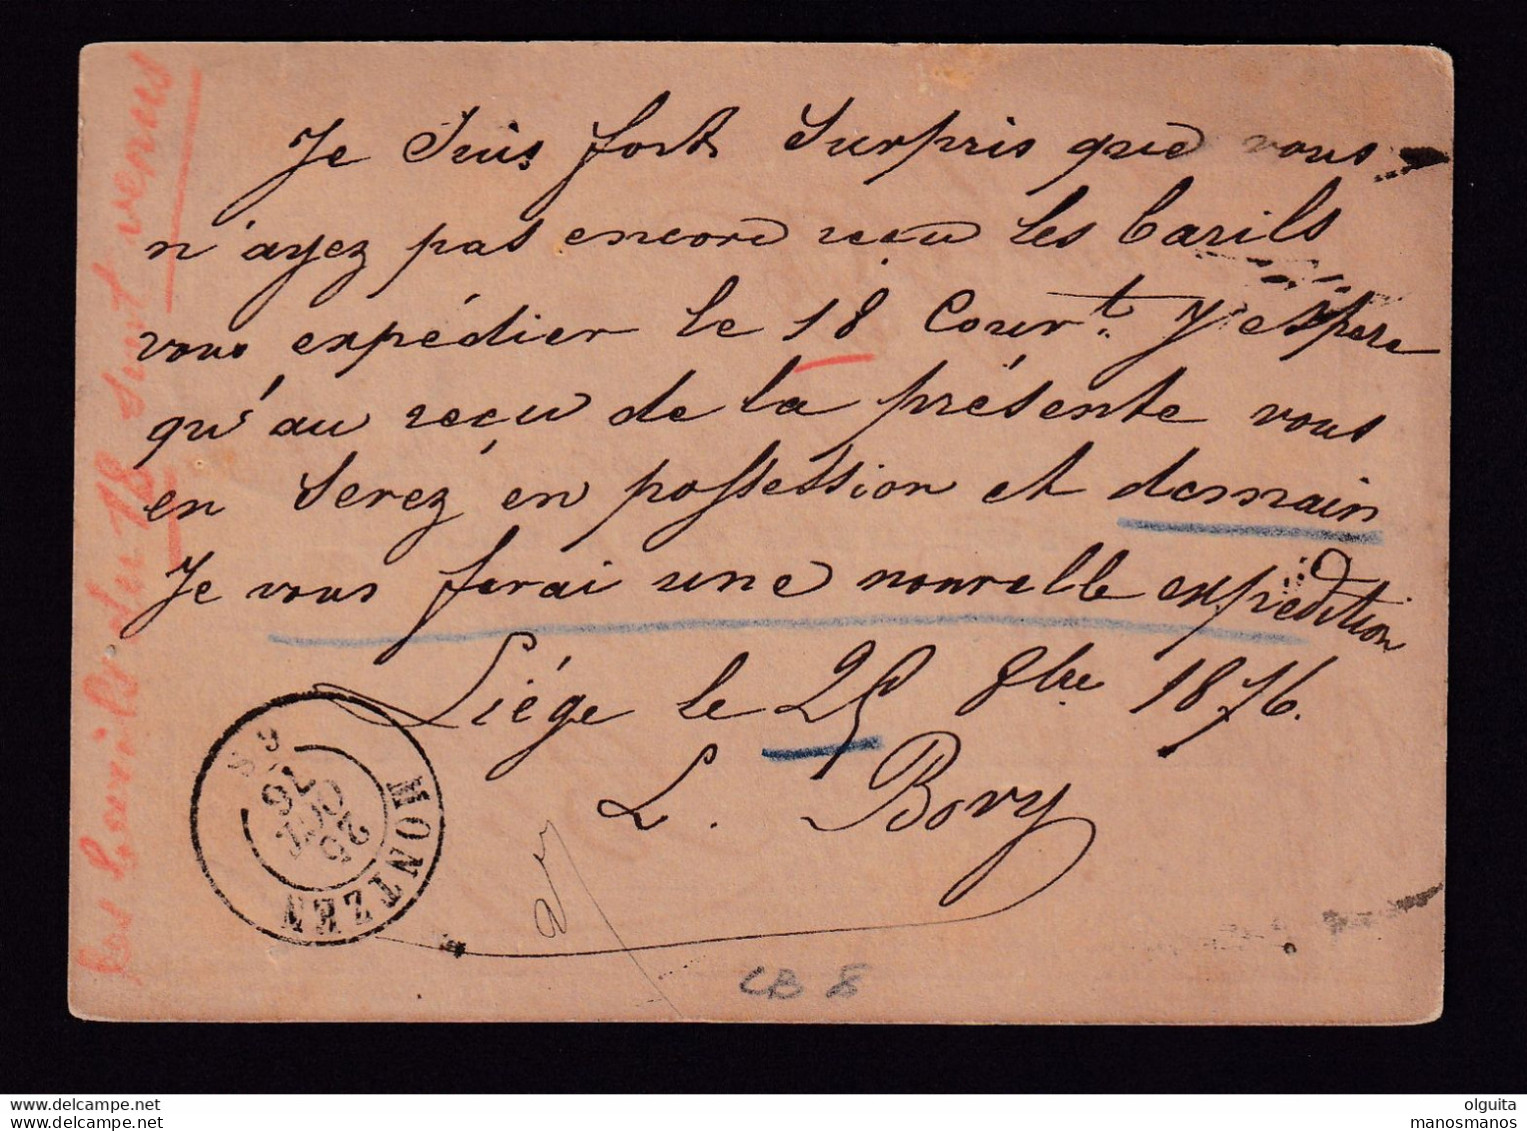 Je suis fort surpris que vous
n'ayez pas encore reçu les barils
vous expédier le 18 Cour.t J'espere
qu'au reçu de la présente vous
en serez en possession et demain
Je vous ferai une nouvelle expédition
Liége le 25 8bre 1876.
L. Bovy
les barils du 18 sont venus
MONTZEN
25
OCT
76
CB 8
olguita
manosmanos